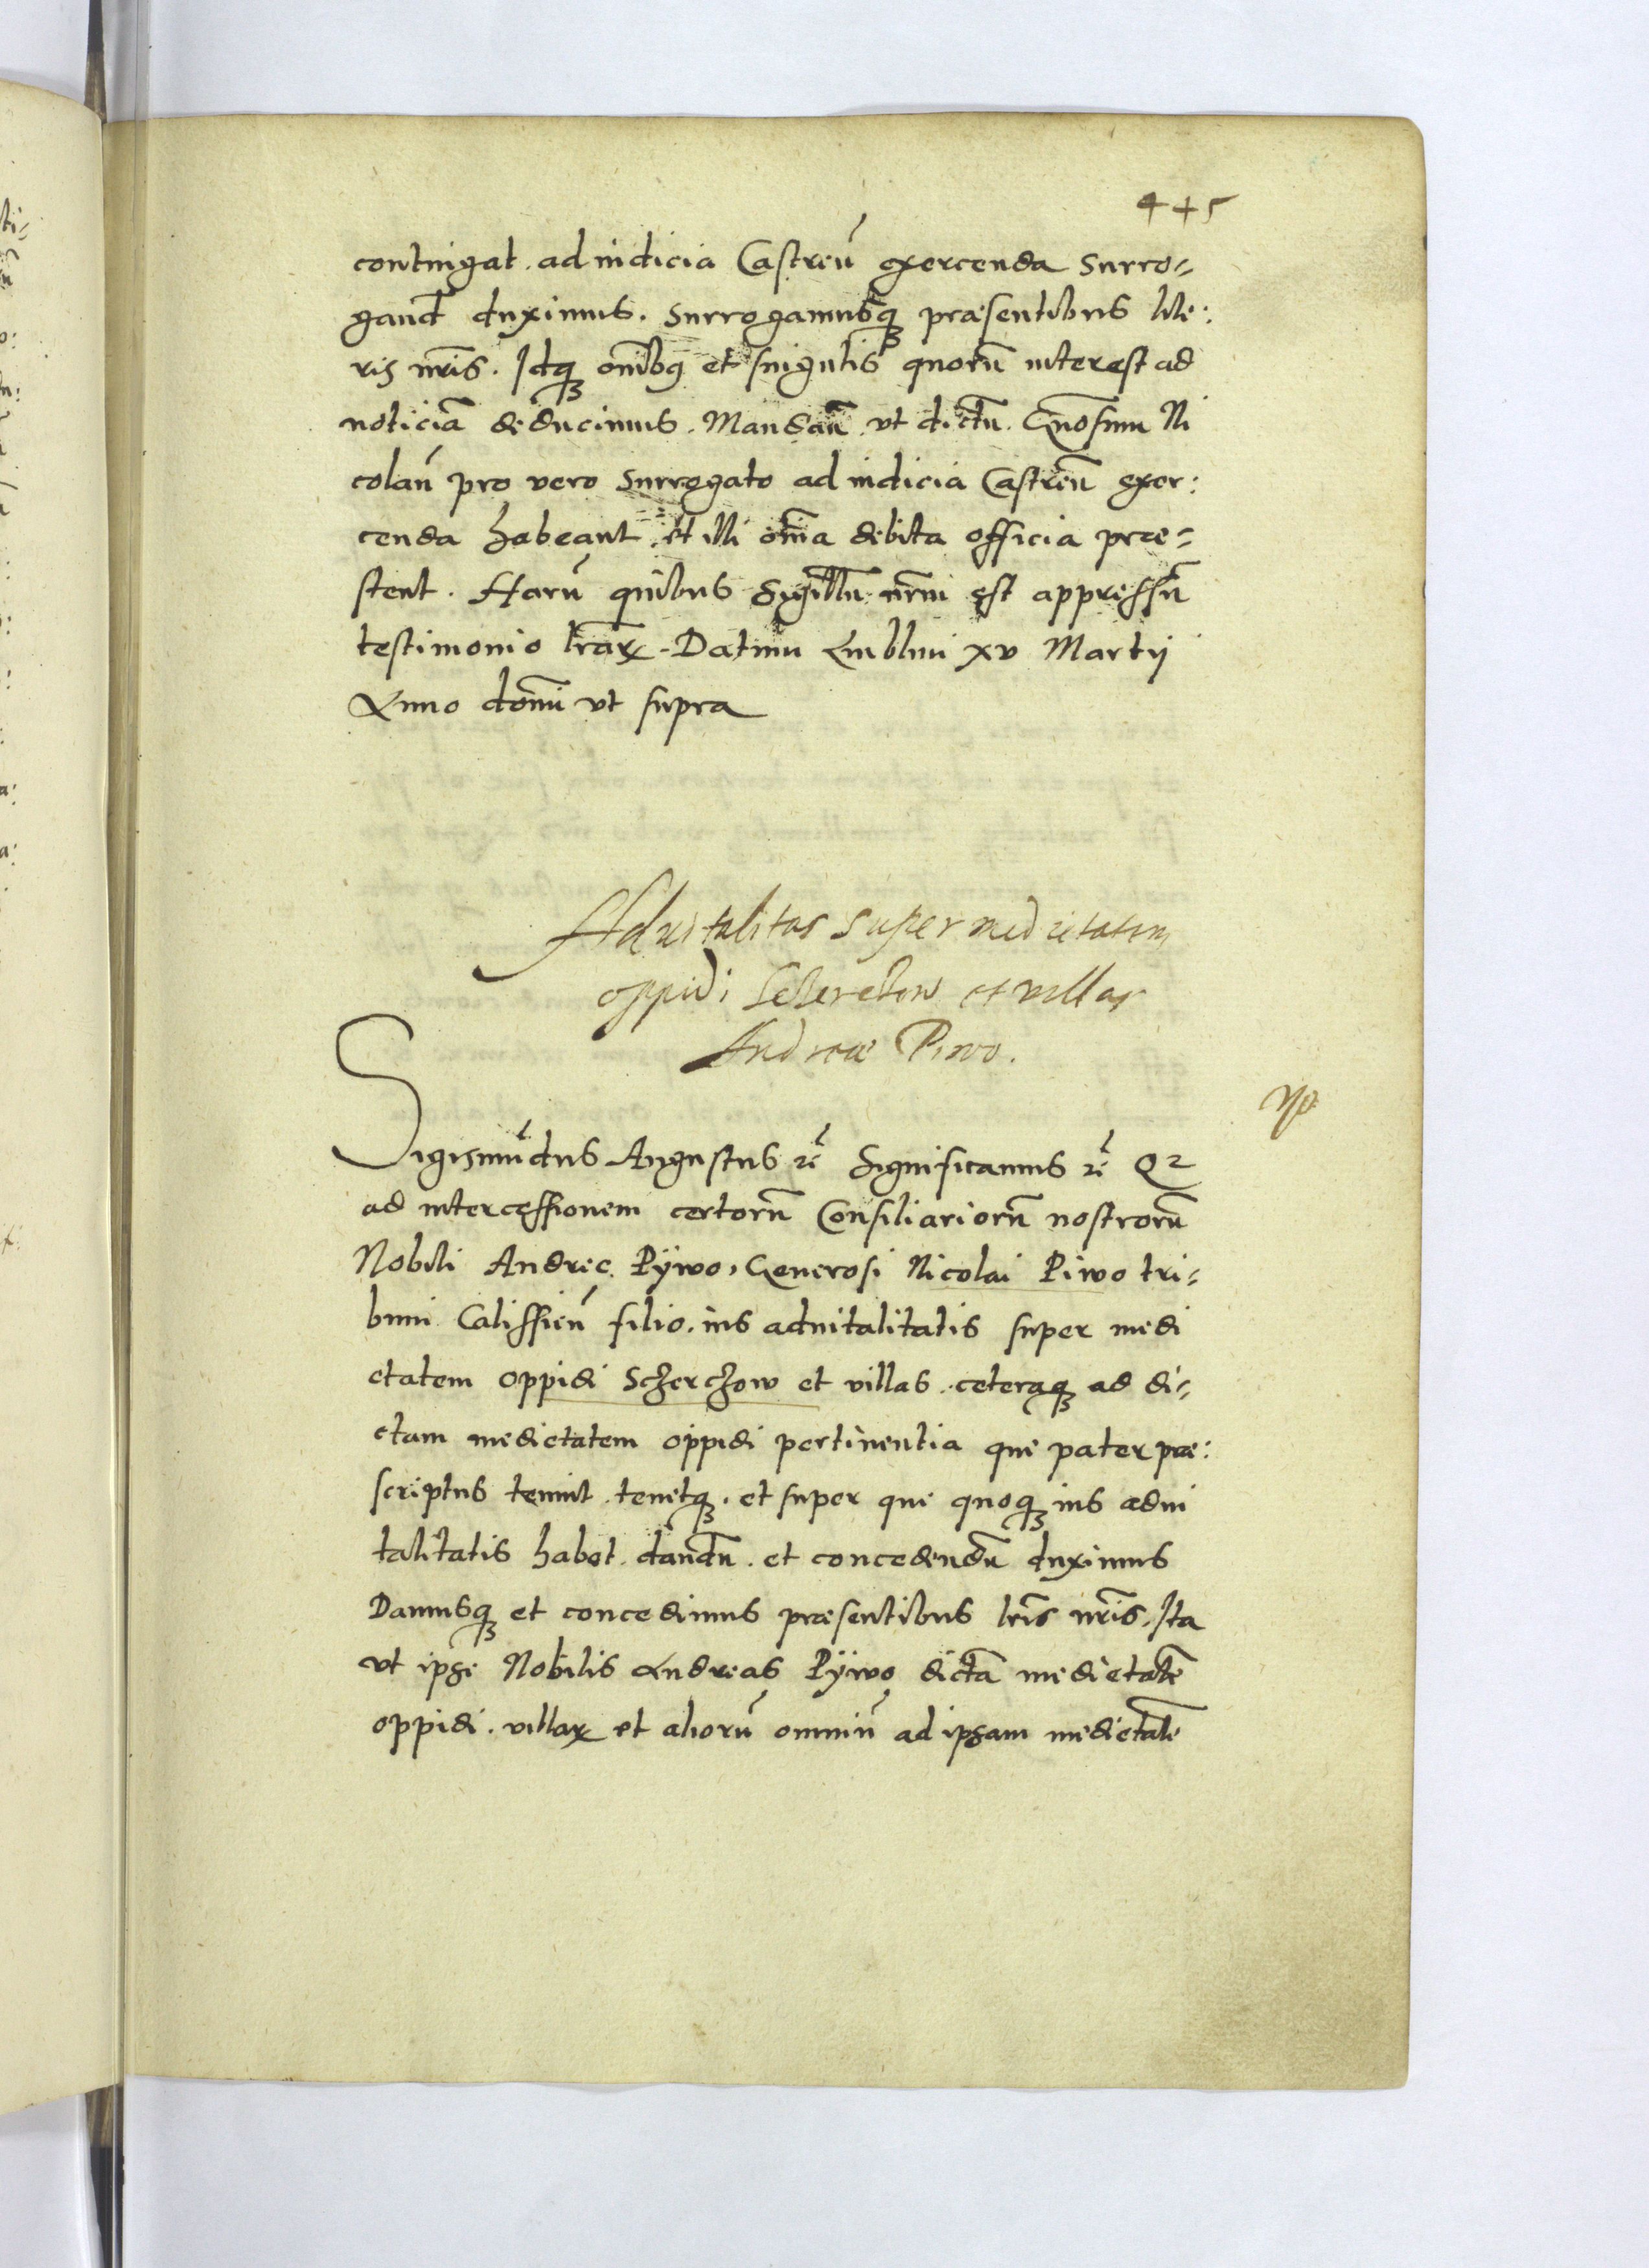 445
contingat. ad iudicia Castreñ exercenda surro=
gand̃ duximus. Surrogamusq̃ præsentibus lite:
ris nr̃is. Idq̃ om̃ibq et singulis quorũ interest ad
noticiã deducimus. Mandañ. vt dictũ. Gñosum Ni
colaũ pro vero surrogato ad iudicia Castreñ exer:
cenda habeant. et illi om̃ia debita officia præ=
stent. Harũ quibus Sigillũ nr̃m est appressũ
testimonio lr̃arꝝ. Datum Lublini xv Martij
Anno domĩ vt supra
Aduitalitas super medietatem
oppidi et villas
Andreæ Piwo.
Sigismũdus Augustus ꝛc̃ Significamus ꝛc̃ Qꝛ
ad intercessionem certorũ Consiliariorũ nostrorũ
Nobili Andreę Pÿwo, Generosi Nicolai Piwo tri=
buni Calissieñ filio. ius aduitalitatis super medi
etatem oppidi Sczerczow et villas. ceteraq̃ ad di=
ctam medietatem oppidi pertinentia que pater præ:
scriptus tenuit. tenetq̃. et super que quoq̃ ius adui
talitatis habet. dandũ. et concedendũ duximus
Damusq̃ et concedimus præsentibus lr̃is nr̃is. Ita
vt ipse Nobilis Andreas Pÿwo dictã medietatẽ
oppidi. villarꝝ et aliorũ omniũ ad ipsam medietatẽ